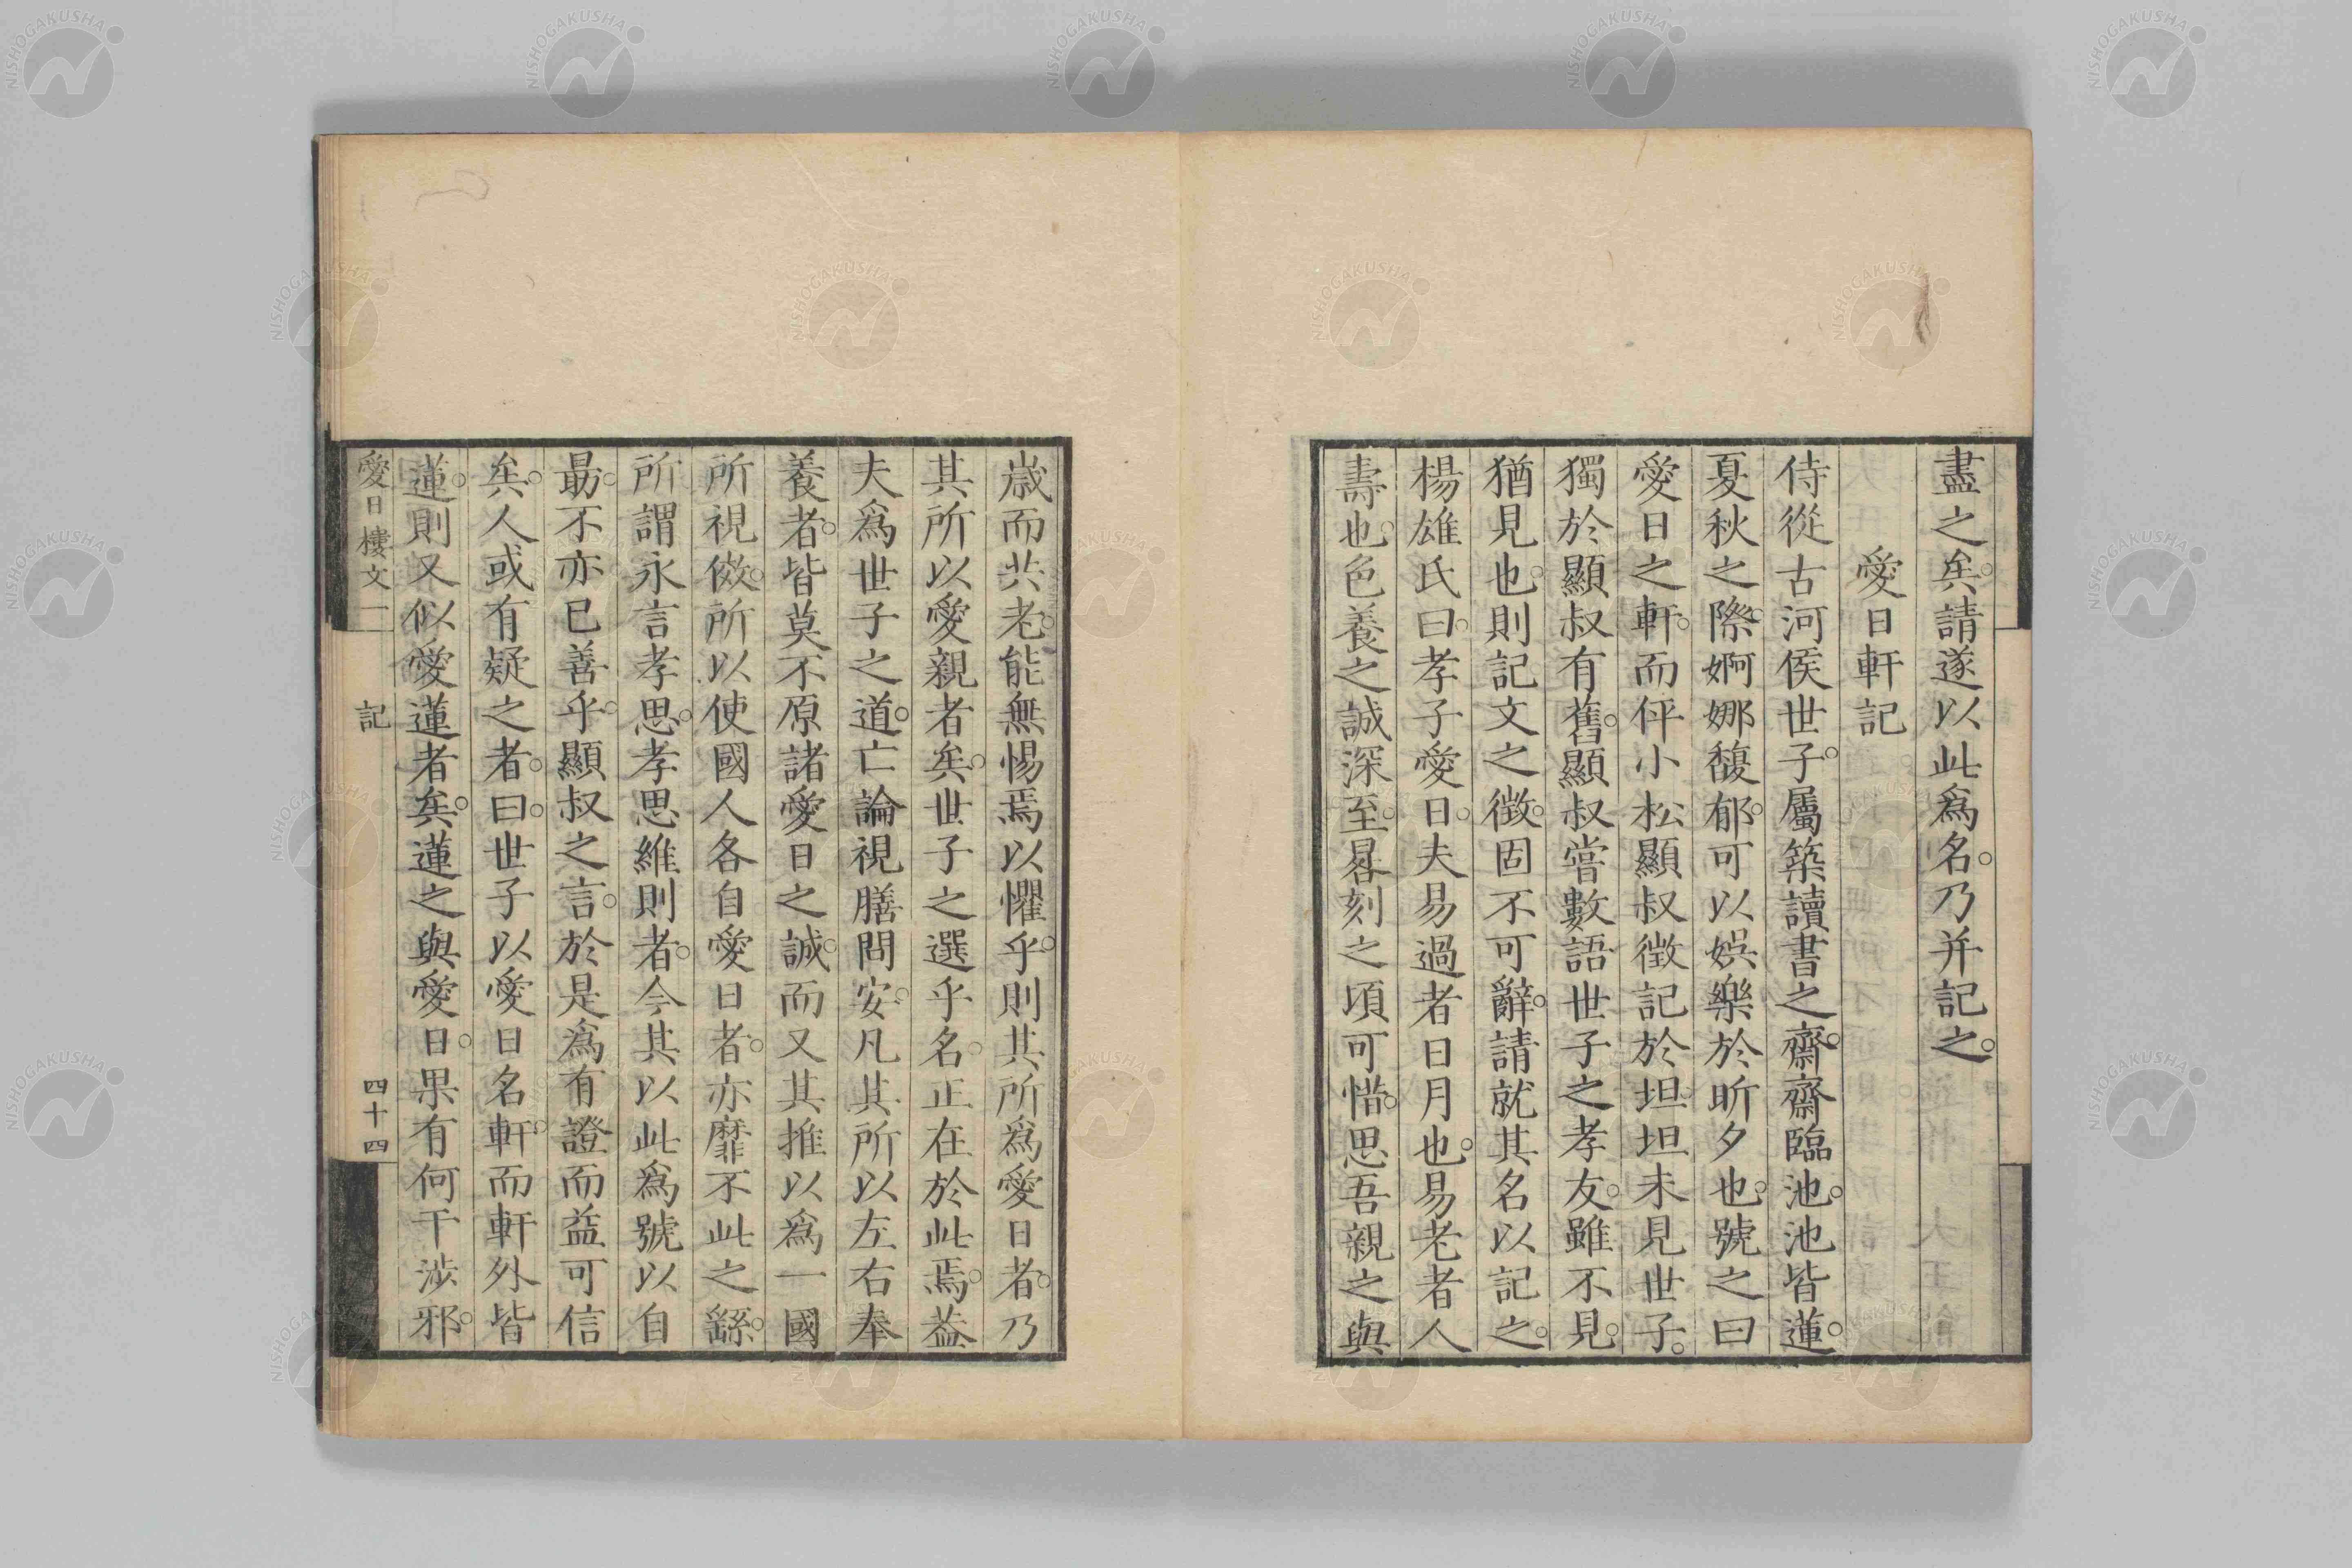 盡之矣。請遂以此爲名。乃并記之。
愛日軒記
侍從古河侯世子。屬築讀書之齋。齋臨池。池皆蓮。
夏秋之際。婀娜馥郁。可以娯樂於昕夕也。號之曰
愛日之軒。而伻小松顯叔徴記於坦。坦未見世子。
獨於顯叔有舊。顯叔嘗數語世子之孝友。雖不見。
猶見也。則記文之徴。固不可辭。請就其名以記之。
楊雄氏曰。孝子愛日。夫易過者日月也。易老者人
壽也。色養之誠深至。晷刻之頃可惜。思吾親之與
歳而共老。能無惕焉以懼乎。則其所爲愛日者。乃
其所以愛親者矣。世子之選乎名。正在於此焉。葢
夫爲世子之道。亡論視膳問安。凡其所以左右奉
養者。皆莫不原諸愛日之誠。而又其推以爲一國
所視傚。所以使國人各自愛日者。亦靡不此之繇。
所謂永言孝思。孝思維則者。今其以此爲號以自
勗。不亦已善乎。顯叔之言。於是爲有證而益可信
矣。人或有疑之者。曰。世子以愛日名軒。而軒外皆
蓮。則又似愛蓮者矣。蓮之與愛日。果有何干渉邪。
愛日樓文一 記 四十四
NISHOGAKUSHA